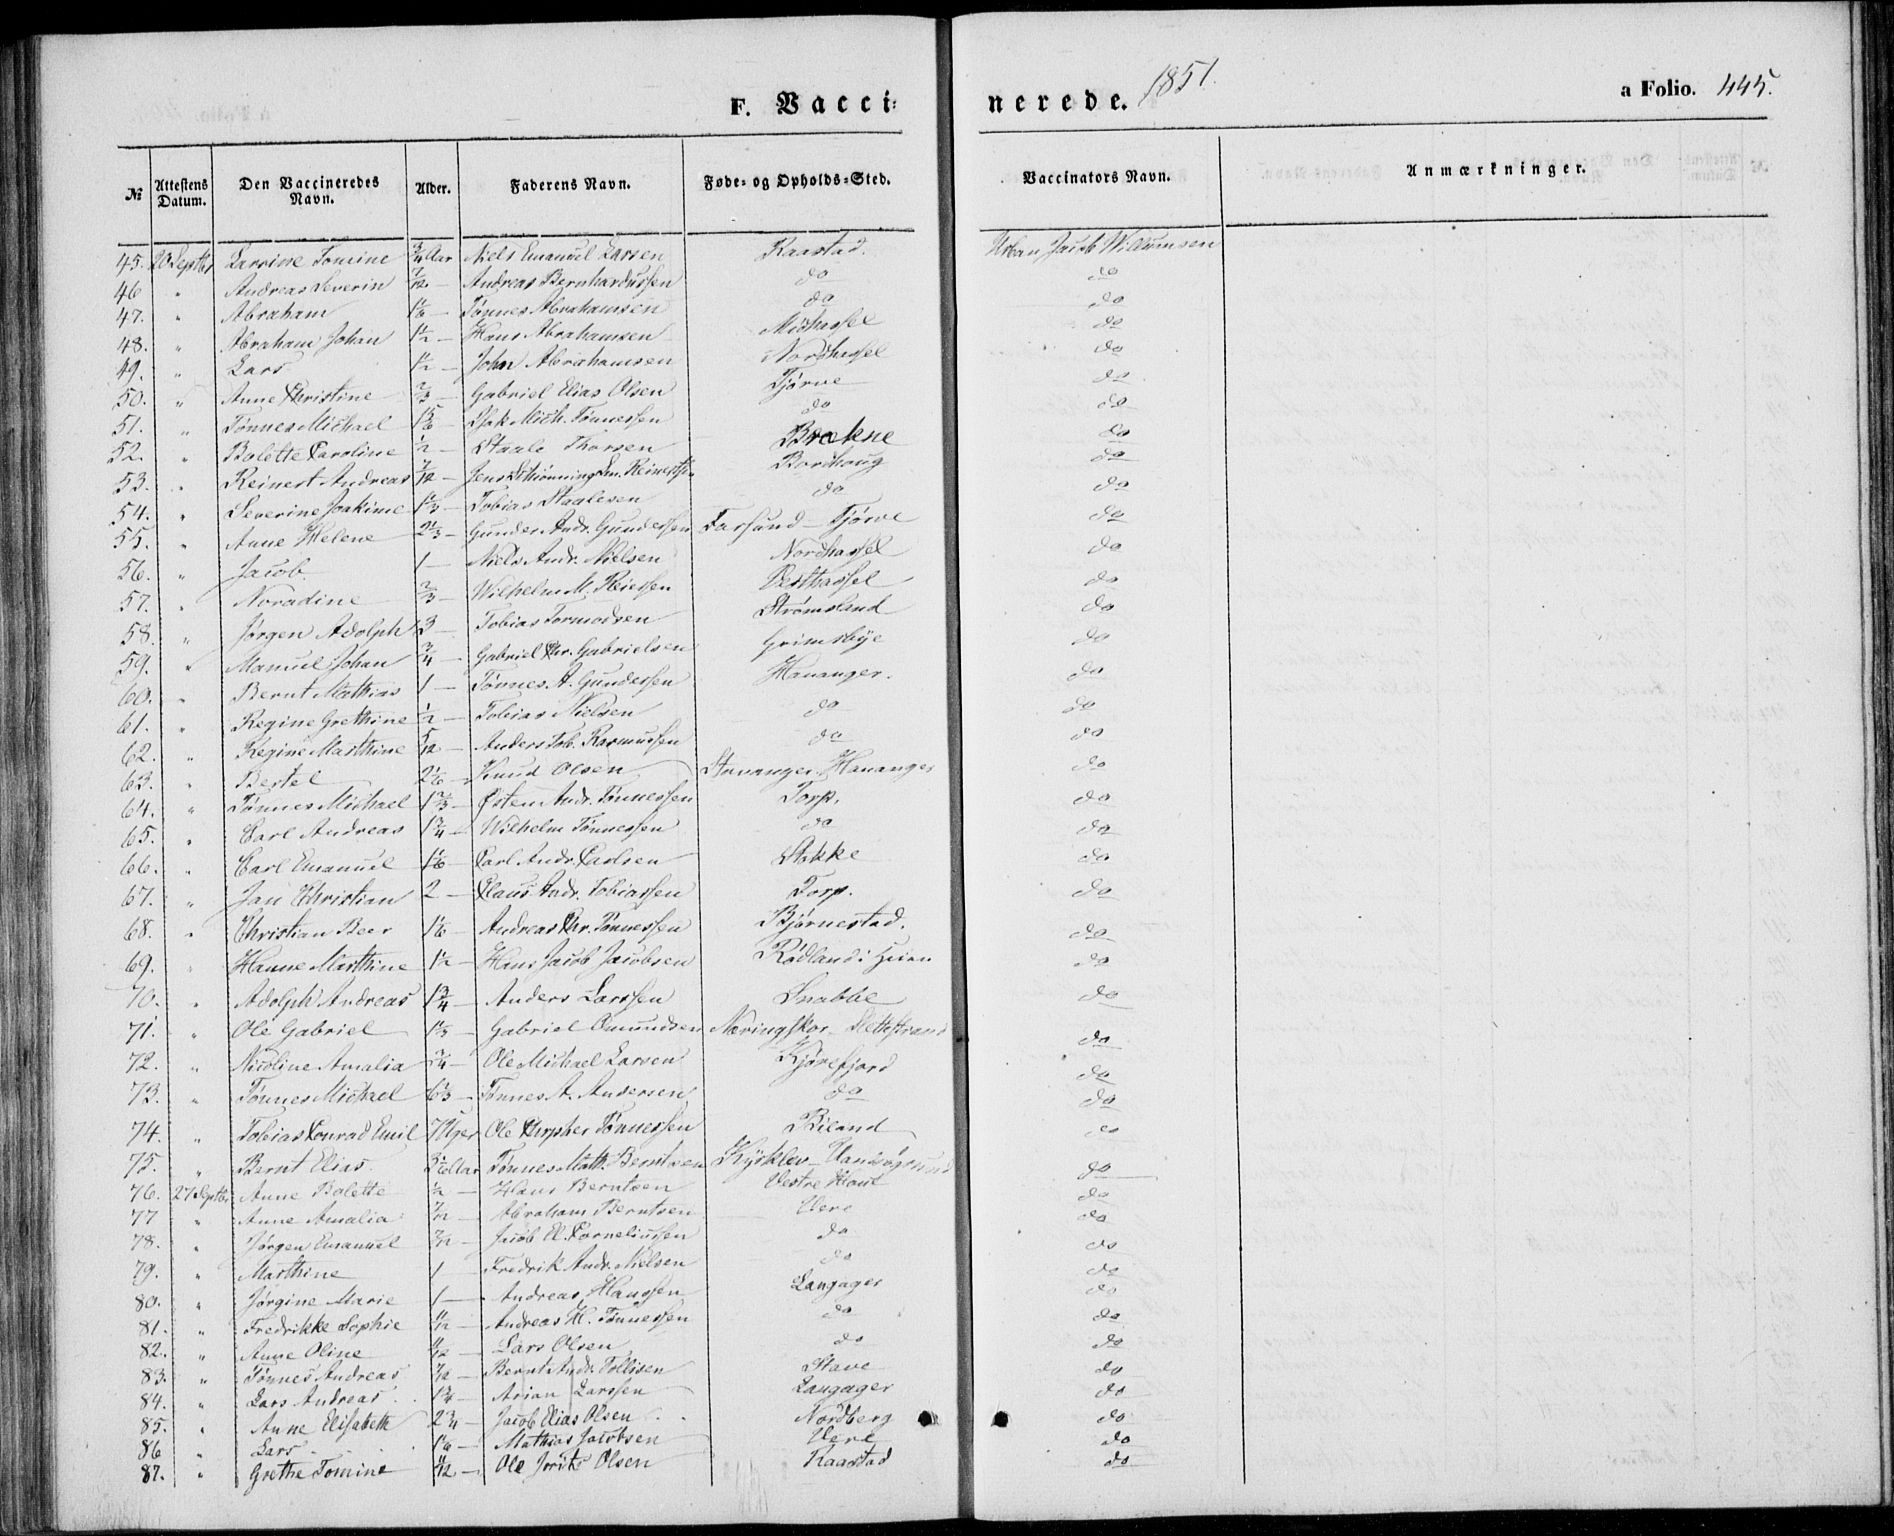 F. Vacci-nerede. 1851. a Folio. 445.
№ Attestens Datum. Den Vaccineredes Navn. Alder. Faderens Navn. Føde- og Opholds-Sted. Vaccinators Navn. Anmærkninger.
45. 20 Septbr Tomine 3/4 Aar Niels Emanuel Larsen Raastad. Urban Jacob Willumsen
46 " Andreas Severin 7/12 — Andreas Bernhardussen do do
47. " Abraham 1 1/6 — Tønnes Abrahamsen do do
48. " Abraham Johan 1 1/2 — Hans Abrahamsen Midhassel do
49. " Lars 1 1/2 — John Abrahamsen Nordhassel do
50. " Anne Christine 2/3 — Gabriel Elias Olsen Tjørve do
51. " Tønnes Michael 1 5/6 — Isak Mich. Tønnessen do do
52. " Bolette Caroline 1/2 — Staale Thorsen Brækne do
53. " Reinert Andreas 7/12 — Jens Reinertsen Bordhoug do
54. " Severine Joakime 1 1/3 — Tobias Staalesen do do
55. " Anne Helene 2 2/3 — Gunder Andr. Gundersen Farsund — Tjørve do
56. " Jacob 1 — Niels Andr. Nielsen Nordhassel do
57. " Noradine 2/3 — Wilhelm M. Reiersen Vesthassel do
58. " Jørgen Adolph 3 — Tobias Tormodsen Strømsland do
59. " Manuel Johan 3/4 — Gabriel Chr. Gabrielsen Grimsbye do
60. " Bernt Mathias 1 — Tønnes A. Gundersen Hananger. do
61. " Regine Grethine 1/2 — Tobias Nielsen do do
62. " Regine Marthine 5/12 — Anders Tob. Rasmussen do do
63. " Bertel 2 1/6 — Knud Olsen Stavanger Hananger do
64. " Tønnes Michael 1 2/3 — Østen Andr. Tønnessen Torp. do
65. " Carl Andreas 1 3/4 — Wilhelm Tønnessen do do
66. " Carl Emanuel 1 1/6 — Carl Andr. Carlsen Stokke do
67. " Jan Christian 2 — Claus Andr. Tobiassen Torp. do
68. " Christian Beer 1 1/6 — Andreas Chr. Tønnessen Bjørnestad. do
69. " Hanne Marthine 1 1/2 — Hans Jacob Jacobsen Rødland i do
70. " Adolph Andreas 1 3/4 — Anders Larssen Snabbe do
71. " Ole Gabriel 1 1/3 — Gabriel Omundsen Slettestrand do
72. " Nicoline Amalia 3/4 — Ole Michael Larsen Kjørefjord do
73. " Tønnes Michael 6 1/3 — Tønnes A. Andersen do do
74. " Tobias Conrad Emil 7 Uger Ole Chrpher Tønnessen Biland do
75. " Bernt Elias Aar Tønnes Math. Berntsen do
76. 27 Septbr Anne Bolette 1/2 — Hans Berntsen Vestre Hout do
77 " Anne Amalia 7/12 — Abraham Berntsen Vere do
78. " Jørgen Emanuel 7/12 — Jacob El. Corneliussen do do
79. " Marthine 1 — Fredrik Andr. Nielsen do do
80. " Jørgine Marie 1 — Andreas Hanssen Langager do
81. " Fredrikke Sophie 11/12 — Andreas H. Tønnessen do do
82. " Anne Oline 11/12 — Lars Olsen do do
83. " Tønnes Andreas 7/12 — Bernt Andr. Tollisen Stave do
84. " Lars Andreas 1 3/4 — Arian Larssen Langager do
85. " Anne Elisabeth 2 3/4 — Jacob Elias Olsen Nordberg do
86 " Lars 1 1/6 — Mathias Jacobsen Vere do
87. " Grethe Tomine 11/12 — Ole Olsen Raastad do